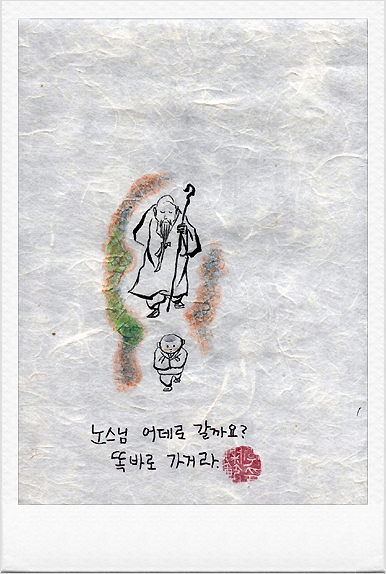 노스님 어데로 갈까요?
똑바로 가거라.